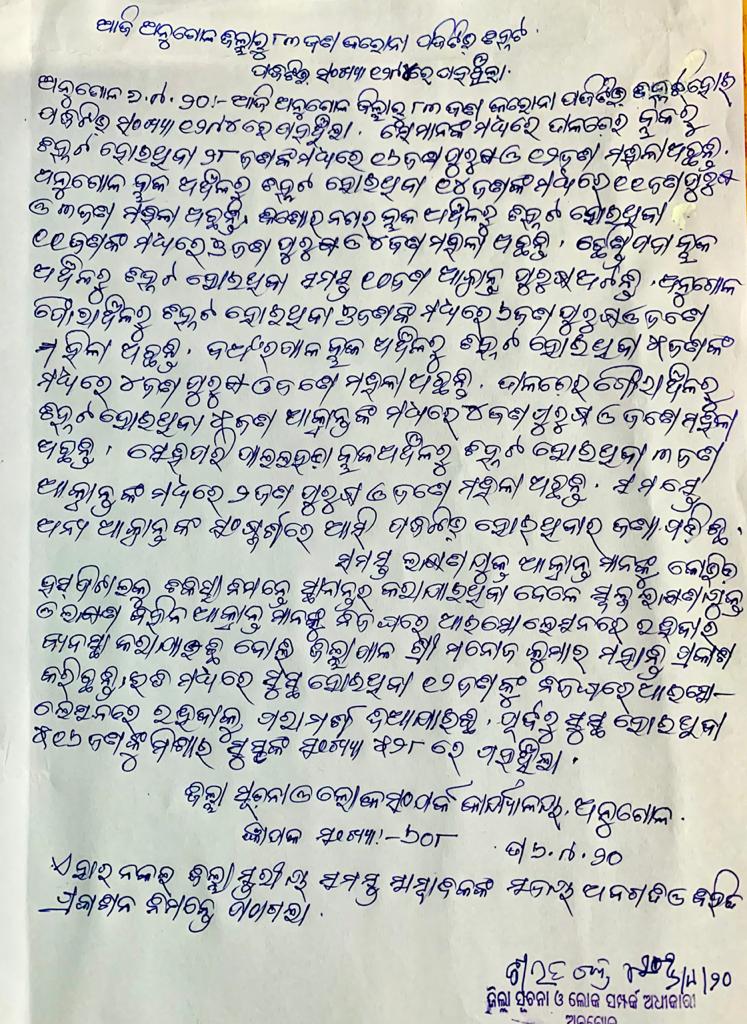 ଆଜି ଅନୁଗୋଳ ଜିଲ୍ଲାରୁ ୮୩ ଜଣ କରୋନା ପଜିଟିଭ୍ ଚିହ୍ନଟ
ପଜିଟିଭ୍ ସଂଖ୍ୟା ୧୨୩୪ରେ ପହଞ୍ଚିଲା.
ଅନୁଗୋଳ ୬.୯.୨୦:- ଆଜି ଅନୁଗୋଳ ଜିଲ୍ଲାରୁ ୮୩ ଜଣ କରୋନା ପଜିଟିଭ୍ ଚିହ୍ନଟ ହୋଇ
ପଜିଟିଭ୍ ସଂଖ୍ୟା ରେ ପହଞ୍ଚିଲା. ସେମାନଙ୍କ ମଧ୍ୟରେ ତାଳଚେର ବ୍ଲକରୁ
ଚିହ୍ନଟ ହୋଇଥିବା ୨୮ ଜଣଙ୍କ ମଧ୍ୟରେ ୧୬ ଜଣ ପୁରୁଷ ଓ ୧୨ ଜଣ ମହିଳା ଅଛନ୍ତି.
ଅନୁଗୋଳ ବ୍ଲକ ଅଞ୍ଚଳରୁ ଚିହ୍ନଟ ହୋଇଥିବା ୧୪ ଜଣଙ୍କ ମଧ୍ୟରେ ୧୧ ଜଣ ପୁରୁଷ
ଓ ୩ ଜଣ ମହିଳା ଅଛନ୍ତି. କିଶୋରନଗର ବ୍ଲକ ଅଞ୍ଚଳରୁ ଚିହ୍ନଟ ହୋଇଥିବା
୧୧ ଜଣଙ୍କ ମଧ୍ୟରେ ୭ ଜଣ ପୁରୁଷ ଓ ୪ ଜଣ ମହିଳା ଅଛନ୍ତି. ଛେଣ୍ଡିପଦା ବ୍ଲକ
ଅଞ୍ଚଳରୁ ଚିହ୍ନଟ ହୋଇଥିବା ସମସ୍ତ ୧୦ ଜଣ ଆକ୍ରାନ୍ତ ପୁରୁଷ ଅଟନ୍ତି. ଅନୁଗୋଳ
ପୌରାଞ୍ଚଳରୁ ଚିହ୍ନଟ ହୋଇଥିବା ୭ ଜଣଙ୍କ ମଧ୍ୟରେ ୬ ଜଣ ପୁରୁଷ ଓ ଜଣେ
ମହିଳା ଅଛନ୍ତି. ବଅଁରପାଳ ବ୍ଲକ ଅଞ୍ଚଳରୁ ଚିହ୍ନଟ ହୋଇଥିବା ୫ ଜଣଙ୍କ
ମଧ୍ୟରେ ୪ ଜଣ ପୁରୁଷ ଓ ଜଣେ ମହିଳା ଅଛନ୍ତି. ତାଳଚେର ପୌରାଞ୍ଚଳରୁ
ଚିହ୍ନଟ ହୋଇଥିବା ୫ ଜଣ ଆକ୍ରାନ୍ତଙ୍କ ମଧ୍ୟରେ ୪ ଜଣ ପୁରୁଷ ଓ ଜଣେ ମହିଳା
ଅଛନ୍ତି. ସେହିପରି ପାଲଲହଡା ବ୍ଲକ ଅଞ୍ଚଳରୁ ଚିହ୍ନଟ ହୋଇଥିବା ୩ ଜଣ
ଆକ୍ରାନ୍ତଙ୍କ ମଧ୍ୟରେ ୨ ଜଣ ପୁରୁଷ ଓ ଜଣେ ମହିଳା ଅଛନ୍ତି. ସମସ୍ତେ
ଅନ୍ୟ ଆକ୍ରାନ୍ତଙ୍କ ସଂସ୍ପର୍ଶରେ ଆସି ପଜିଟିଭ୍ ହୋଇଥିବାର ଜଣାପଡିଛି.
ସମସ୍ତ ଲକ୍ଷଣଯୁକ୍ତ ଆକ୍ରାନ୍ତ ମାନଙ୍କୁ କୋଭିଡ୍
ହସପିଟାଲକୁ ଚିକିତ୍ସା ନିମନ୍ତେ ସ୍ଥାନାନ୍ତର କରାଯାଇଥିବା ବେଳେ ସ୍ୱଳ୍ପ ଲକ୍ଷଣଯୁକ୍ତ
ଓ ଲକ୍ଷଣ ବିହୀନ ଆକ୍ରାନ୍ତ ମାନଙ୍କୁ ନିଜ ଘରେ ଆଇସୋଲେସନରେ ରହିବାର
ବ୍ୟବସ୍ଥା କରାଯାଇଛି ବୋଲି ଜିଲ୍ଲାପାଳ ଶ୍ରୀ ମନୋଜ କୁମାର ମହାନ୍ତି ପ୍ରକାଶ
କରିଛନ୍ତି. ଇତି ମଧ୍ୟରେ ସୁସ୍ଥ ହୋଇଥିବା ୧୨ ଜଣଙ୍କୁ ନିଜ ଘରେ ଆଇସୋ-
ଲେସନରେ ରହିବାକୁ ପରାମର୍ଶ ଦିଆଯାଇଛି. ପୂର୍ବରୁ ସୁସ୍ଥ ହୋଇଥିବା
୫୧୬ ଜଣଙ୍କୁ ମିଶାଇ ସୁସ୍ଥଙ୍କ ସଂଖ୍ୟା ୫୨୮ ରେ ପହଞ୍ଚିଲା.
ଜିଲ୍ଲା ସୂଚନା ଓ ଲୋକସଂପର୍କ କାର୍ଯ୍ୟାଳୟ, ଅନୁଗୋଳ.
ଜ୍ଞାପକ ସଂଖ୍ୟା:-୬୦୮ ତା ୬.୯.୨୦
ଏହାର ନକଲ ଜିଲ୍ଲାସ୍ତରୀୟ ସମସ୍ତ ସାମ୍ବାଦିକଙ୍କ ସୂଚନାର୍ଥେ ଅବଗତି ଓ
ପ୍ରକାଶନ ନିମନ୍ତେ ପଠାଗଲା.
ଜିଲ୍ଲା ସୂଚନା ଓ ଲୋକ ସମ୍ପର୍କ ଅଧିକାରୀ
ଅନୁଗୋଳ